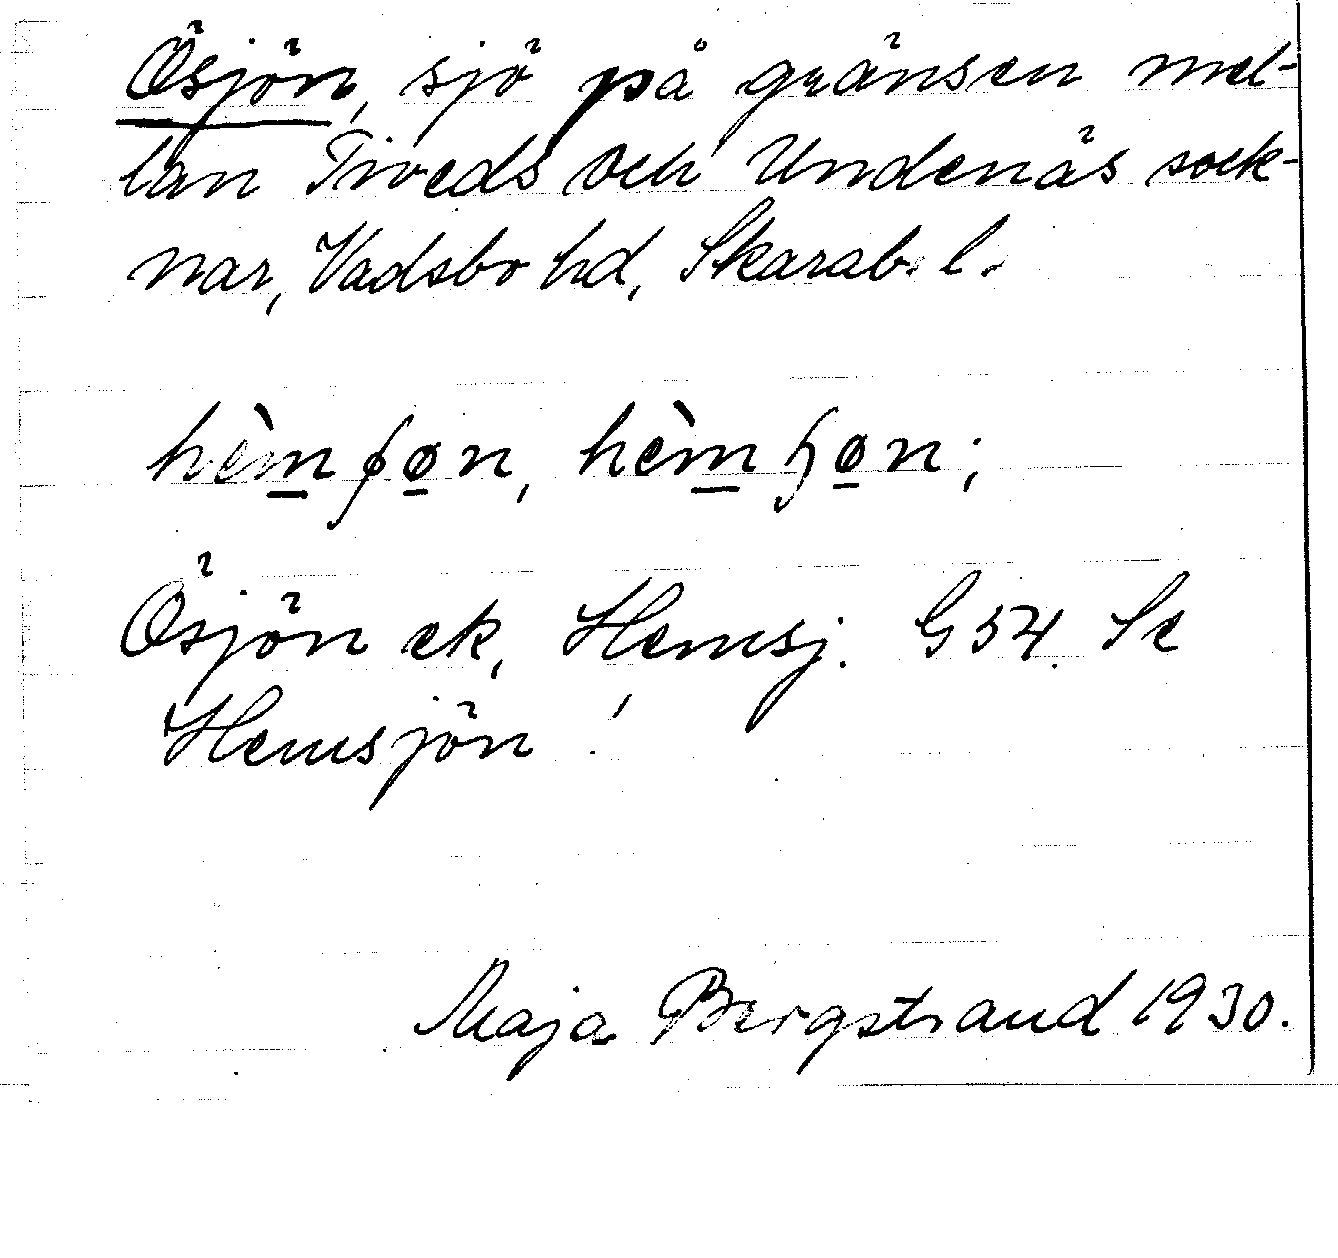 Ösjön, sjö på gränsen mel-
lan Tiveds och Undenäs sock-
nar, Vadsbo hd, Skarab. l.
Ösjön ek, Hemsj. G54. Se
Hemsjön!
Maja Bergstrand 1930.